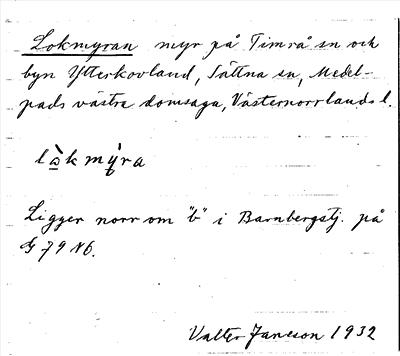 Lokmyran myr på Timrå sn och
byn Ytterkovland, Sättna sn, Medel-
pads västra domsaga, Västernorrlands l.
Ligger norr om "b" i Barnbergstj. på
79 N6.
Valter Janeson 1932